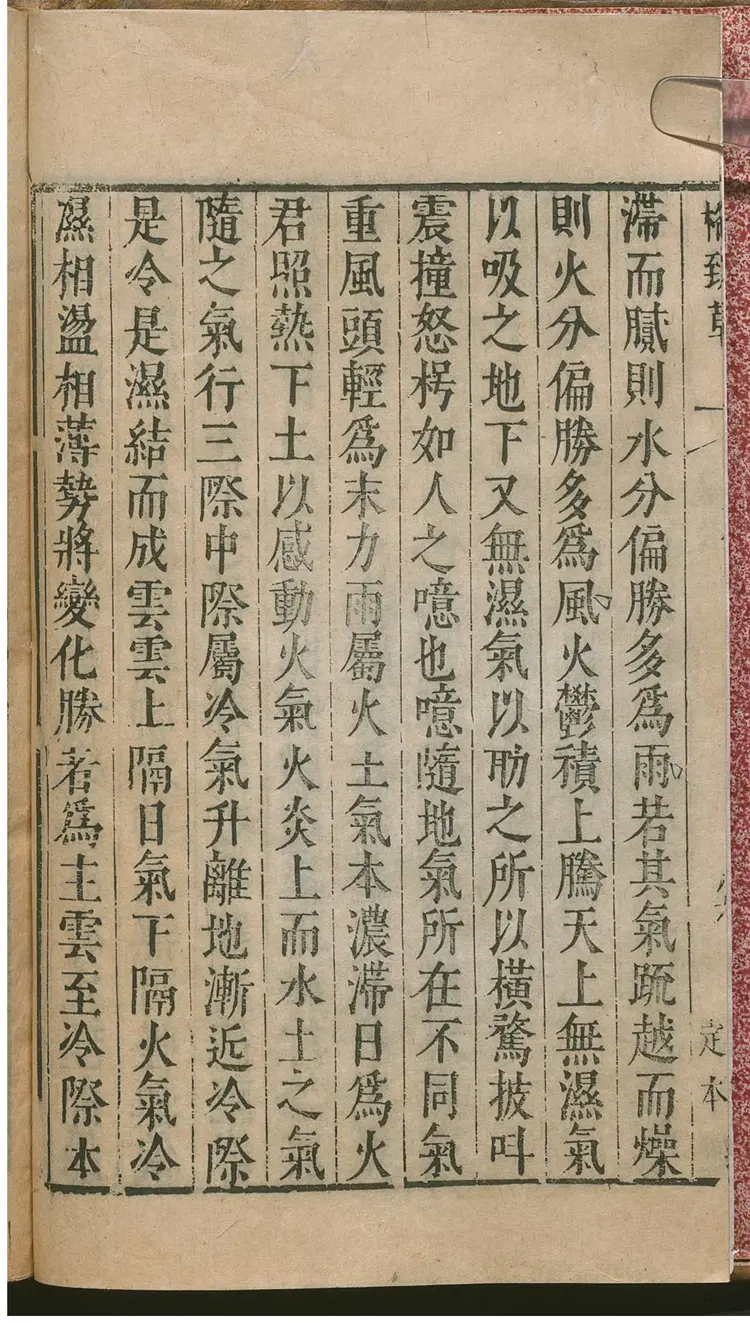 格致草
定本
滯而膩則水分偏勝多爲雨若其氣䟽越而燥
則火分偏勝多爲風火鬱積上騰天上無濕氣
以吸之地下又無濕氣以助之所以橫騖披叫
震撞怒枵如人之噫也噫隨地氣所在不同氣
重風頭輕爲末力雨屬火土氣本濃滯日爲火
君照熱下土以感動火氣火炎上而水土之氣
隨之氣行三際中際屬冷氣升離地漸近冷際
是令是濕結而成雲雲上隔日氣下隔火氣冷
濕相盪相薄勢將變化勝者爲主雲至冷際本